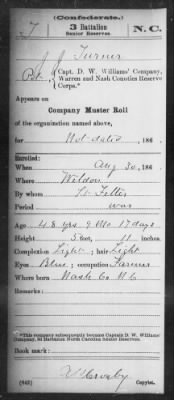 (Confederate.)
T 3 Battalion N.C.
Senior Reserves.
J. J. Turner
Pvt., Capt. D. W. Williams' Company,
Warren and Nash Counties Reserve
Corps.*
Appears on
Company Muster Roll
of the organization named above,
for Not dated, 186 .
Enrolled:
When Aug 30, 186 .
Where Weldon
By whom Lt. 
Period war
Age 48 yrs 9 Mo 17 days
Height 5 feet, 11 inches.
Complexion Light; hair Light
Eyes Blue; occupation Farmer
Where born Nash Co N.C
Remarks:
*This company subsequently became Captain D. W. Williams'
Company, 3d Battalion North Carolina Senior Reserves.
Book mark:
(642) Copyist.